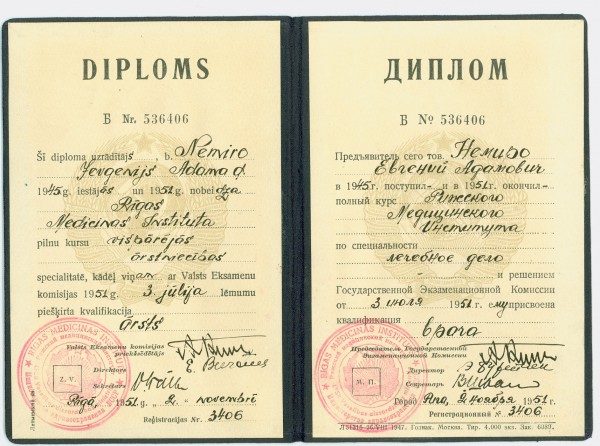 DIPLOMS
Б Nr. 536406
Šī diploma uzrādītājs, b. Nemiro
Jevgenijs Adama d.
1945 g. iestājās un 1951 g. nobeidza
Rīgas
Medicinas Instituta
pilnu kursu vispārējās
ārstniecības
specialitātē, kādēļ viņam ar Valsts Eksamenu
komisijas 1951 g. 3. jūlija lēmumu
piešķirta kvalifikacija
ārsts
Valsts Eksamenu komisijas
priekšsēdētājs
Direktors
Sekretars
Z. V.
Rīgā, 1951 g. "2" novembrī
Reģistracijas Nr. 3406
ДИПЛОМ
Б № 536406
Предъявитель сего тов. Немиро
Евгений Адамович
в 1945 г. поступил и в 1951 г. окончил
полный курс Рижского
Медицинского
Института
по специальности
лечебное дело
и решением
Государственной Экзаменационной Комиссии
от 3 июля 1951 г. ему присвоена
квалификация
врача
Председатель Государственной
Экзаменационной Комиссии
Директор
Секретарь
М. П.
Город Рига, 2 ноября 1951 г.
Регистрационный № 3406
1947 г. Гознак. Москва. Тир. 4.000 экз. Зак.